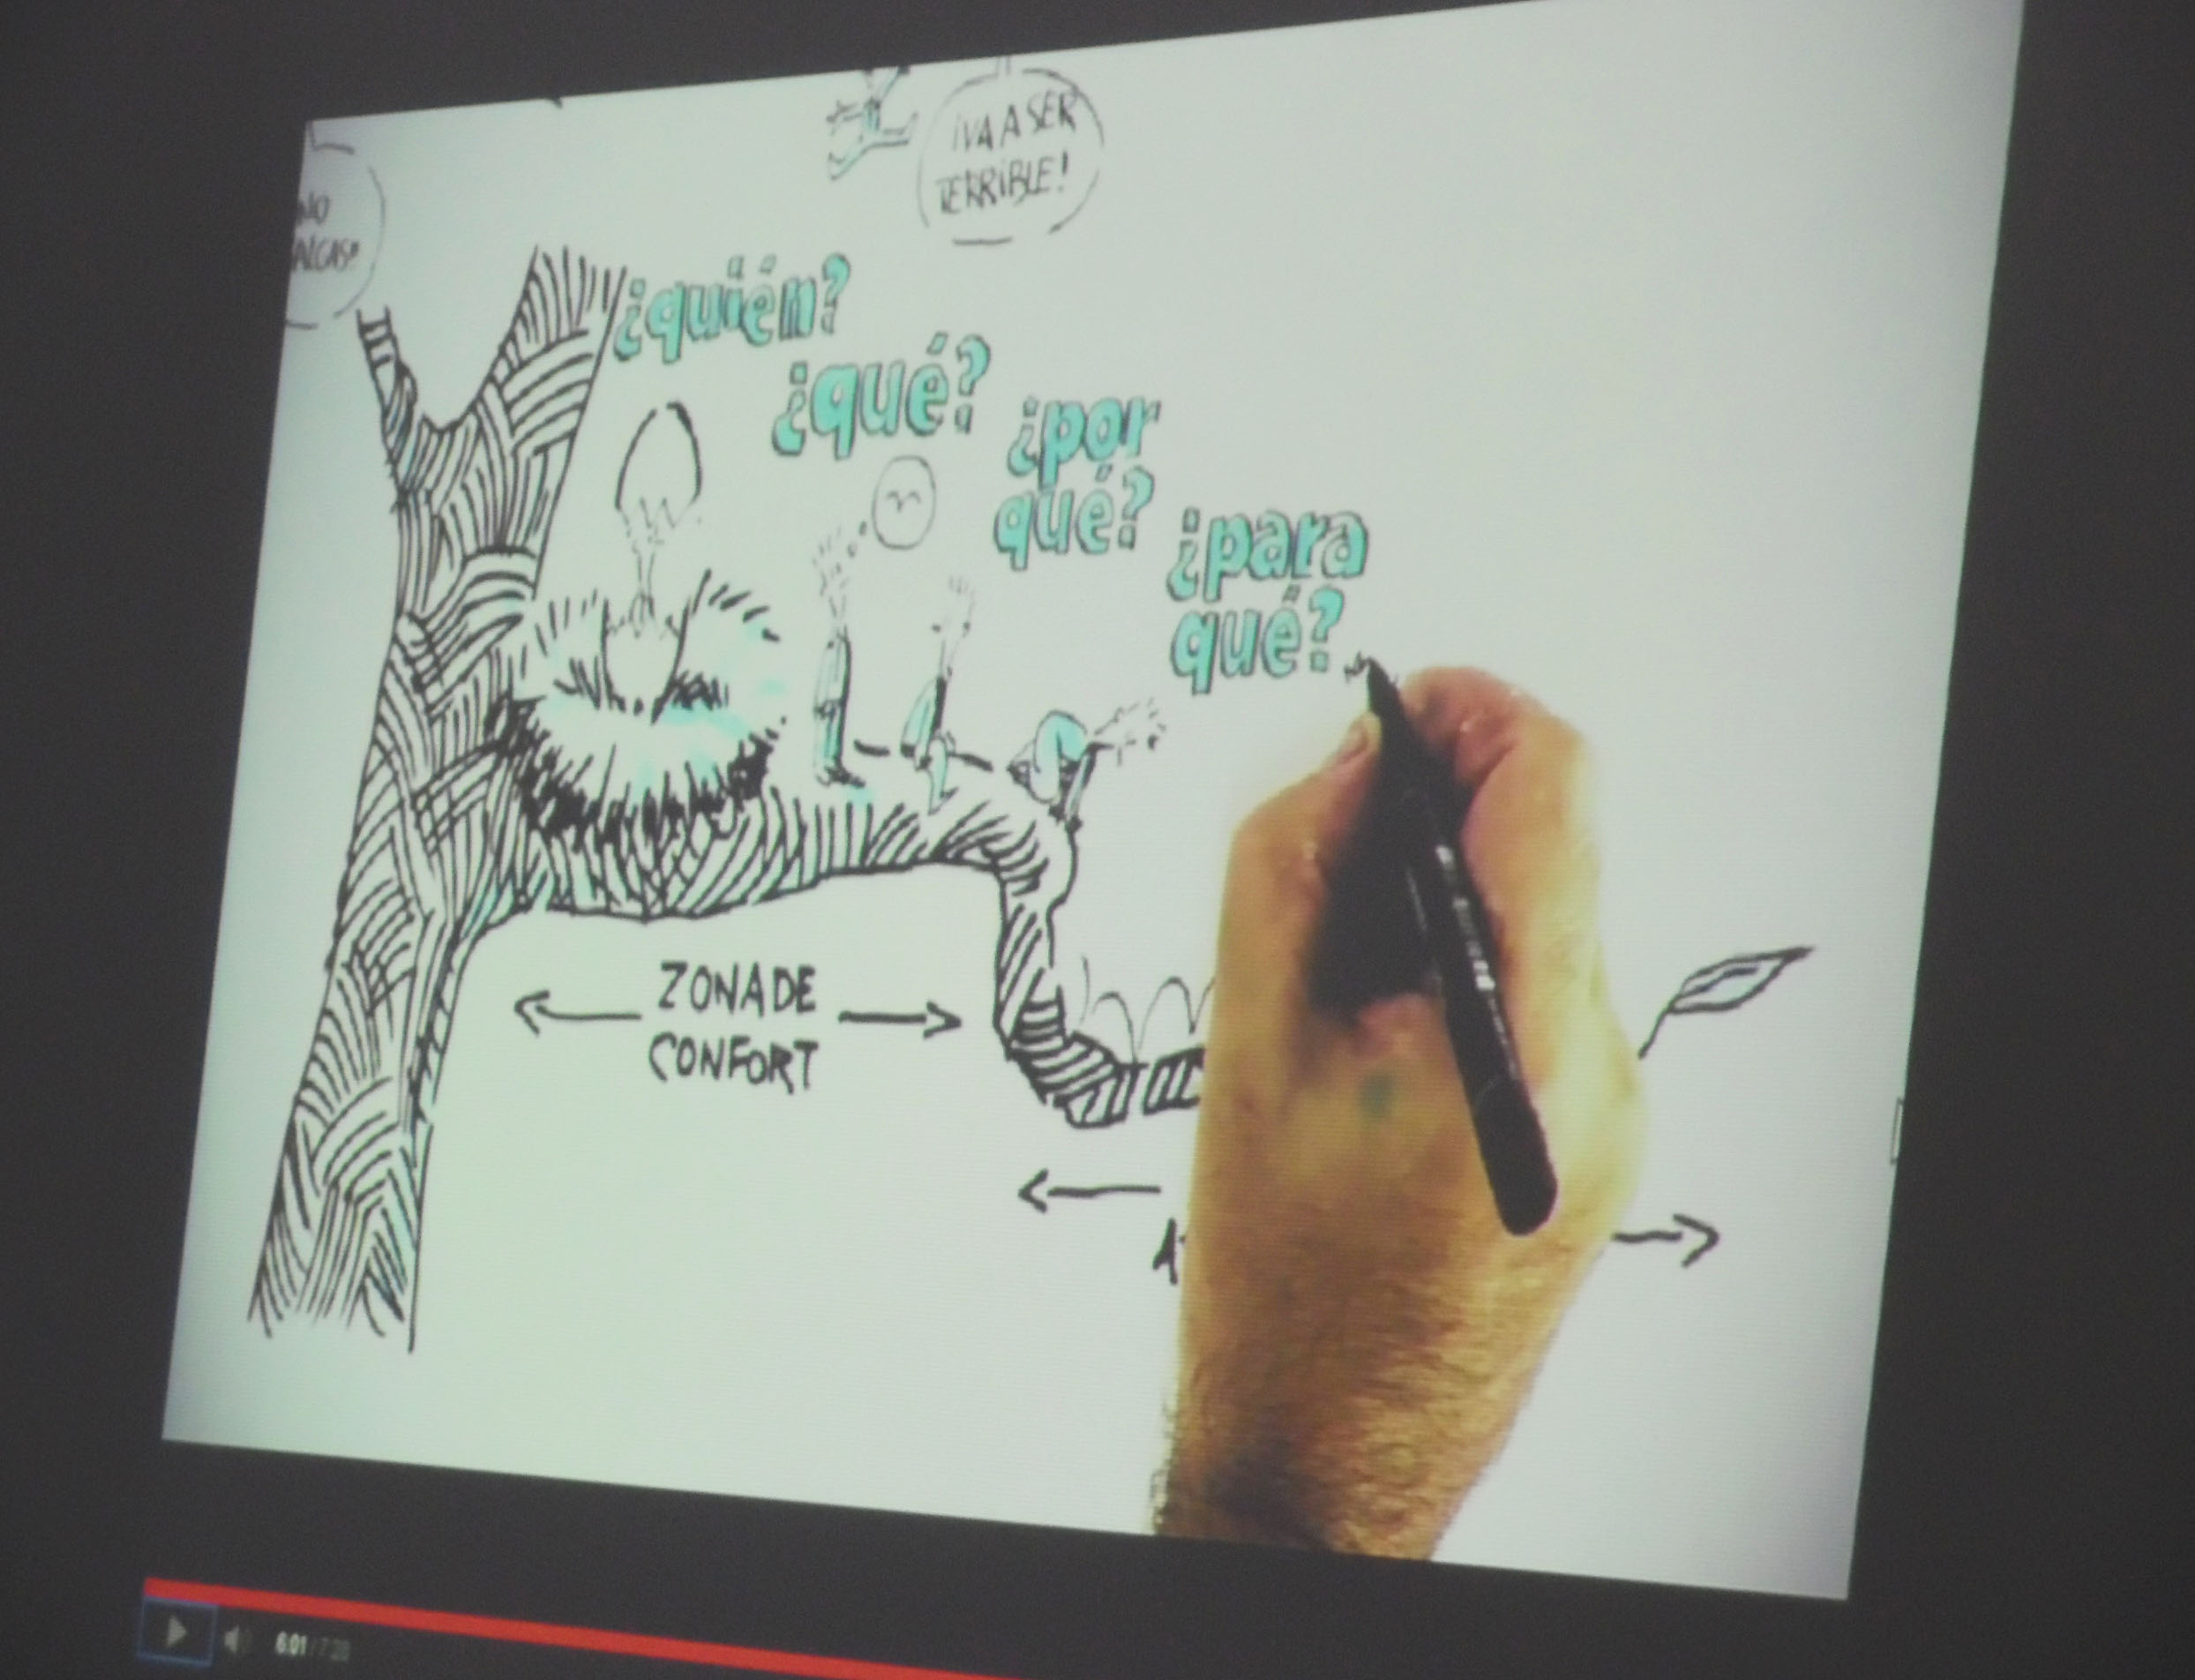 ¡VA A SER
TERRIBLE!
NO
¿quién?
¿qué?
¿por
qué?
¿para
qué?
ZONA DE
CONFORT
A
6:01 / 7:28